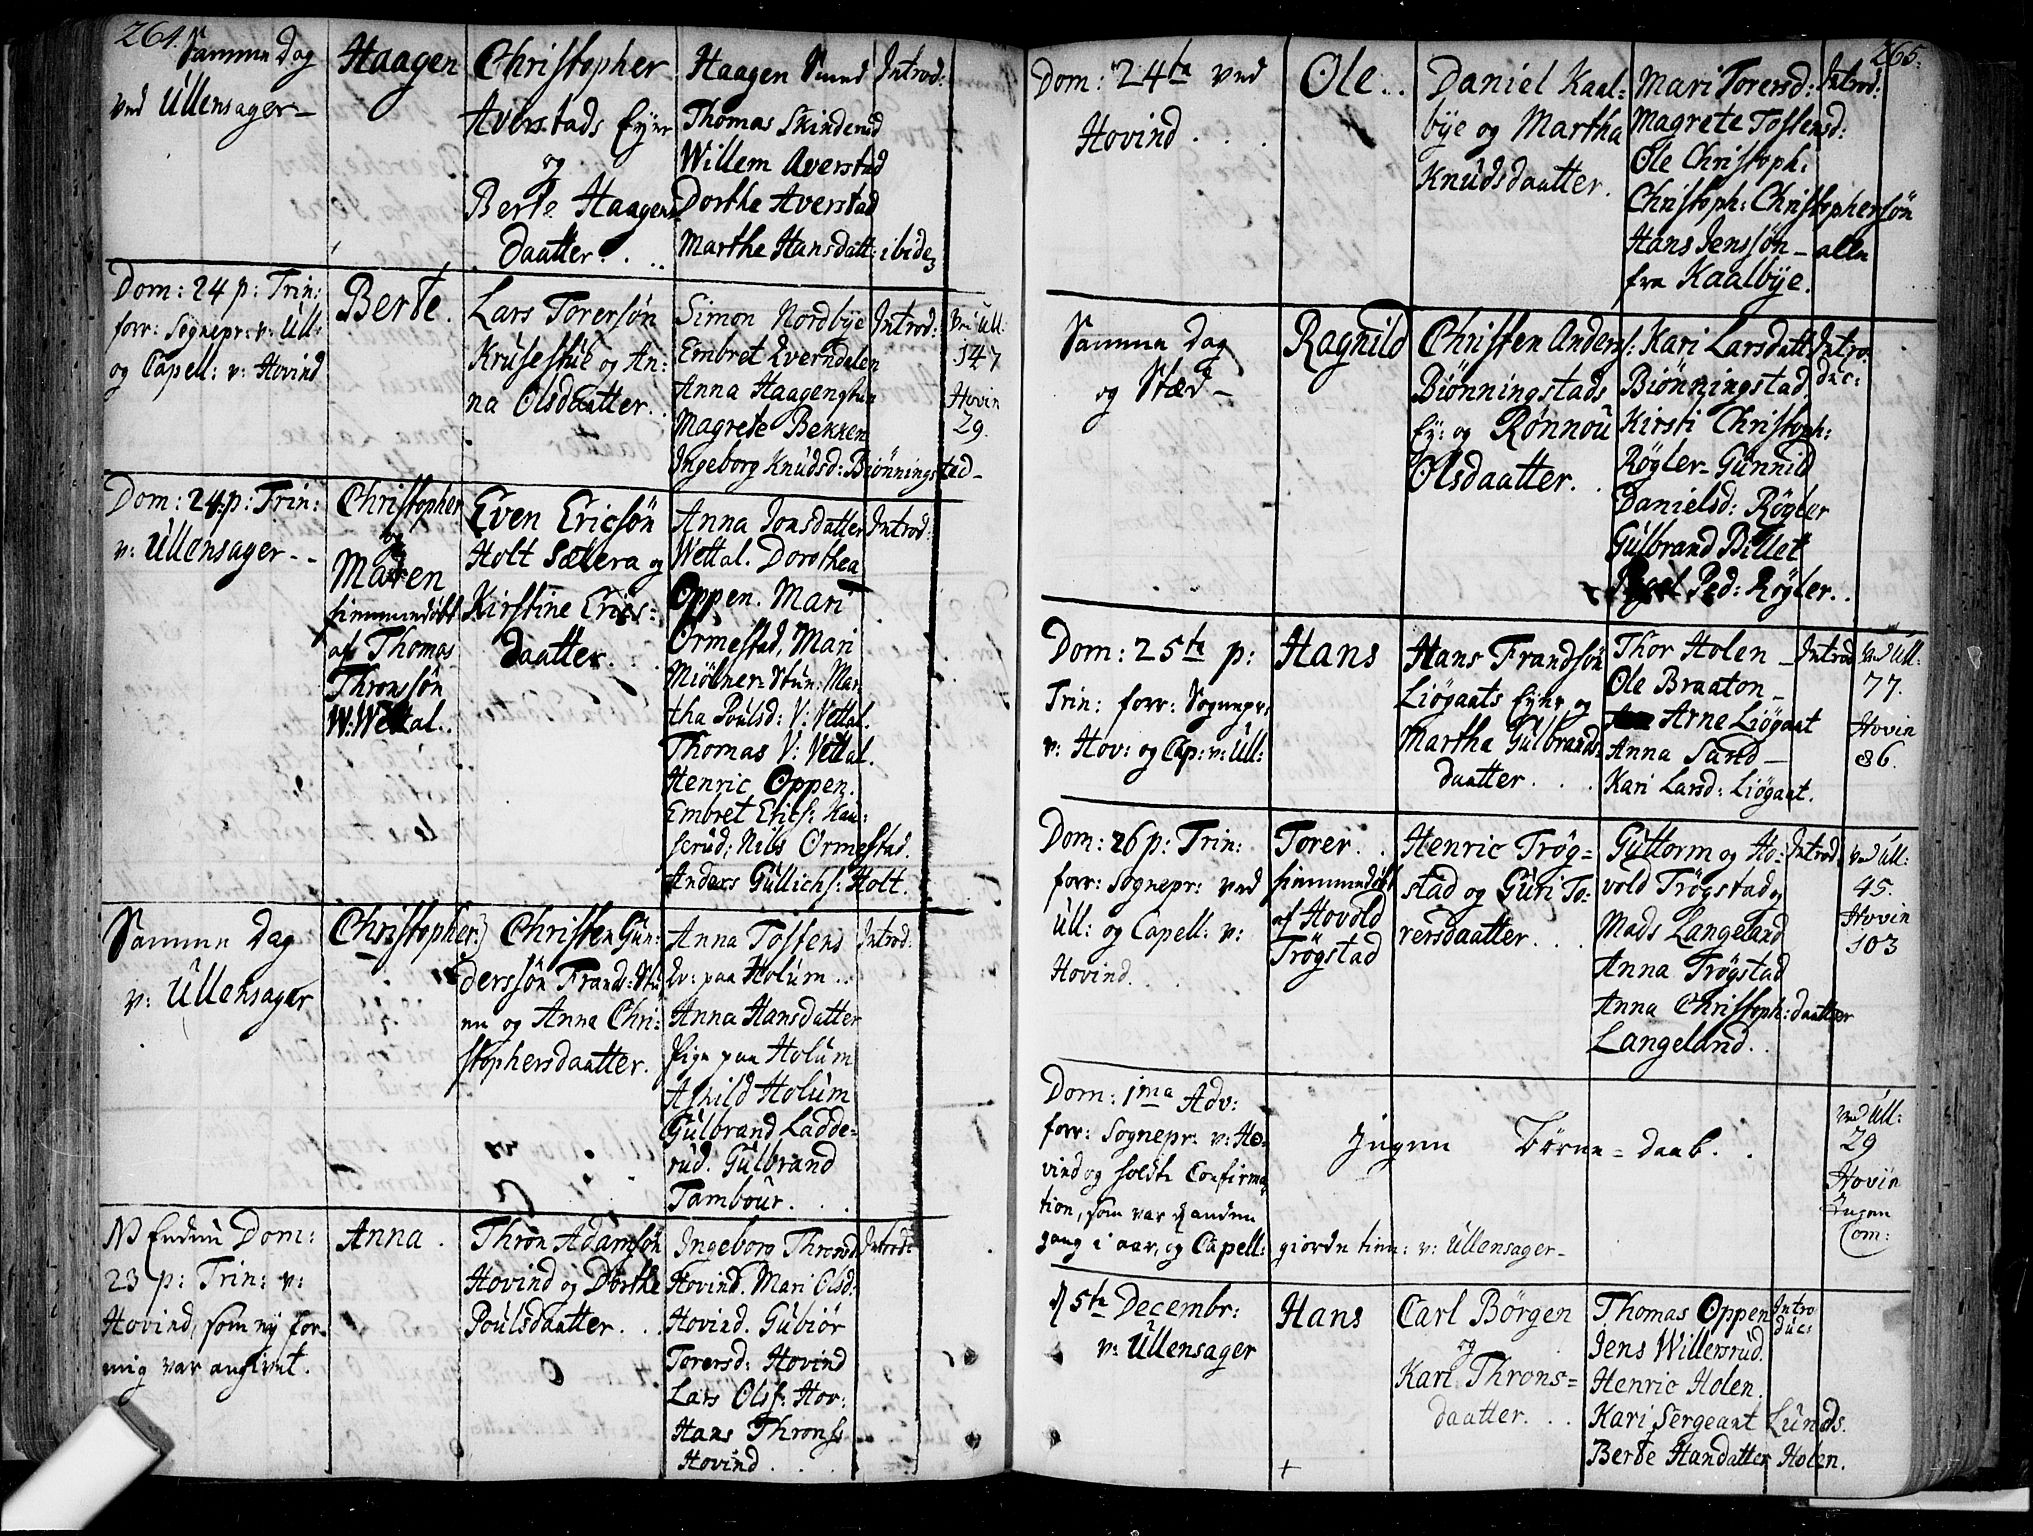 264.
Samme Dag
ved Ullensager –
Haagen
Christopher
Averstads Eyer
og
Berte Haagens
daatter. . .
Haagen Smed
Thomas Skinderud
Willem Averstad
Dorthe Averstad
Marthe Hansdatt: ibide
Introd:
Dom: 24 p: Trin:
forr: Sognepr: v: Ull:
og Capell: v: Hovind
Berte.
Lars Torersøn
Krusestue og An:
na Olsdaatter.
Simon Nordbye
Embret Everndalen
Anna Haagenstun
Magrete Bekken
Ingeborg Knudsd: Biønningstad –
Introd:
Ved Ull:
147
Hovin
29.
Dom: 24: p: Trin:
v: Ullensager – -
Christopher
og
Maren
hiemmedøbt
af Thomas
Thronsøn
W: Wettal..
Even Ericsøn
Holt Sætera og
Kirstine Erics:
daatter. . .
Anna Jonsdatter
Wettal. Dorothea
Oppen. Mari
Ormestad, Mari
Miølner-Stun: Mar
tha Poulsd: V: Vettal.
Thomas V: Vettal.
Henric Oppen.
Embret Erics: Kau:
serud; Nils Ormestad.
Anders Gullichs: Holt.
Introd:
Samme Dag
v: Ullensager
Christopher:
Christen Gun:
dersøn Frand: Stu
en og Anne Chri:
stophersdaatter.
Anna Tostens
Ev: paa Holum . .
Anna Hansdatter
Pige paa Holum
Ashild Holum
Gulbrand Ladde=
rud. Gulbrand
Tambour. . .
Introd:
NB Endnu Dom:
23 p: Trin: v:
Hovind, som ny for
mig var angivet.
Anna.
Thron Adamsøn
Hovind og Dorthe
Poulsdaatter. . .
Ingeborg Thronsd:
Hovind. Mari Olsd:
Hovind. Gubiør
Torersd: Hovind
Lars Olss: Hov:
Hans Throns
Hovind . . .
Introd:
265.
Dom: 24te ved
Hovind . . .
Ole . .
Daniel Kaal=
bye og Martha
Knudsdaatter.
Mari Torersd:
Magrete Tostensd:
Ole Christoph:
Christoph: Christophersøn
Hans Jenssøn – alle
fra Kaalbye.
Introd:
Samme Dag
og Stæd –
Ragnild
Christen Anders:
Biønningstads
Ey: og Rønnou
Olsdaatter. .
Kari Larsdatt:
Biønningstad.
Kirsti Christoph:
Røgler – Gunnild
Danielsd: Røgler
Gulbrand Billet
Ped: Røgler. .
Intro
duc:
Dom: 25te p:
Trin: forr: Sognepr:
v: Hov: og Cap: v: Ull:
Hans
Hans Frandsøn
Liøgaats Eyer og
Martha Gulbrands
daatter . . .
Thor Holen –
Ole Braaton –
Arne Liøgaat
Anna Sand –
Kari Larsd: Liøgaat.
Introd
Ved Ull:
77.
Hovin
86.
Dom: 26 p: Trin:
forr: Sognepr: ved
Ull: og Capell: v:
Hovind. . .
Torer. .
hiemmedøbt
af Hovold
Trøgstad
Henric Trøg=
stad og Guri To:
rersdaatter. . .
Guttorm og Ho:
vold Trøgstad,
Mads Langeland
Anna Trøgstad
Anna Christoph: daatter
Langeland. .
Introd:
Ved Ull:
45.
Hovin
103
Dom: 1ma Adv:
forr: Sognepr: v: Ho:
vind og holdte Confirma
tion, som var d anden
gang i aar, og Capell: giorde tien: v: Ullensager –
Ingen Børne = daab . .
Ved Ull:
29
Hovin
Ingen
Com:
d 5te Decembr:
v: Ullensager
Hans
Carl Børgen
og
Kari Throns=
daatter. . .
Thomas Oppen
Jens Willersrud.
Henric Holen.
Kari Sergeant Lunds.
Berte Handatter Holen.
Intro
duc: